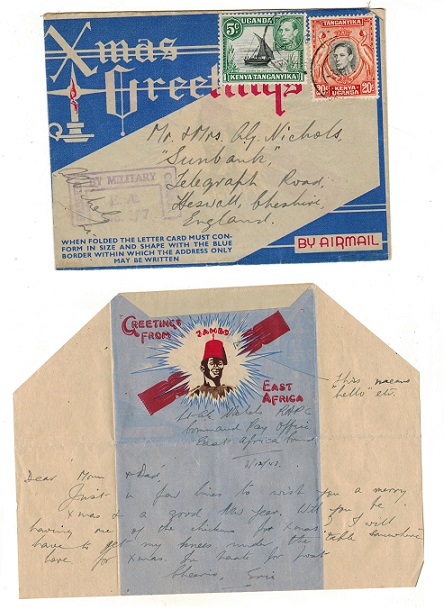 Xmas
Greetings
5c UGANDA
KENYA·TANGANYIKA
TANGANYIKA
KENYA
UGANDA
20c 20c
Mr. & Mrs. Nichols,
"Sunbank",
Telegraph Road,
Heswall, Cheshire,
England.
BY MILITARY
WHEN FOLDED THE LETTER CARD MUST CON-
FORM IN SIZE AND SHAPE WITH THE BLUE
BORDER WITHIN WHICH THE ADDRESS ONLY
MAY BE WRITTEN
BY AIRMAIL
GREETINGS
FROM
JAMBO
EAST
AFRICA
This means
"hello" etc.
Command Pay Office
East Africa Command
Dear Mum & Dad
Just a few lines to wish you a merry
Xmas & a good New Year. Will you be
having one of the chickens for Xmas? I will
have to get my knees under the table somewhere
here for Xmas. In haste for post
Cheerio, Eric